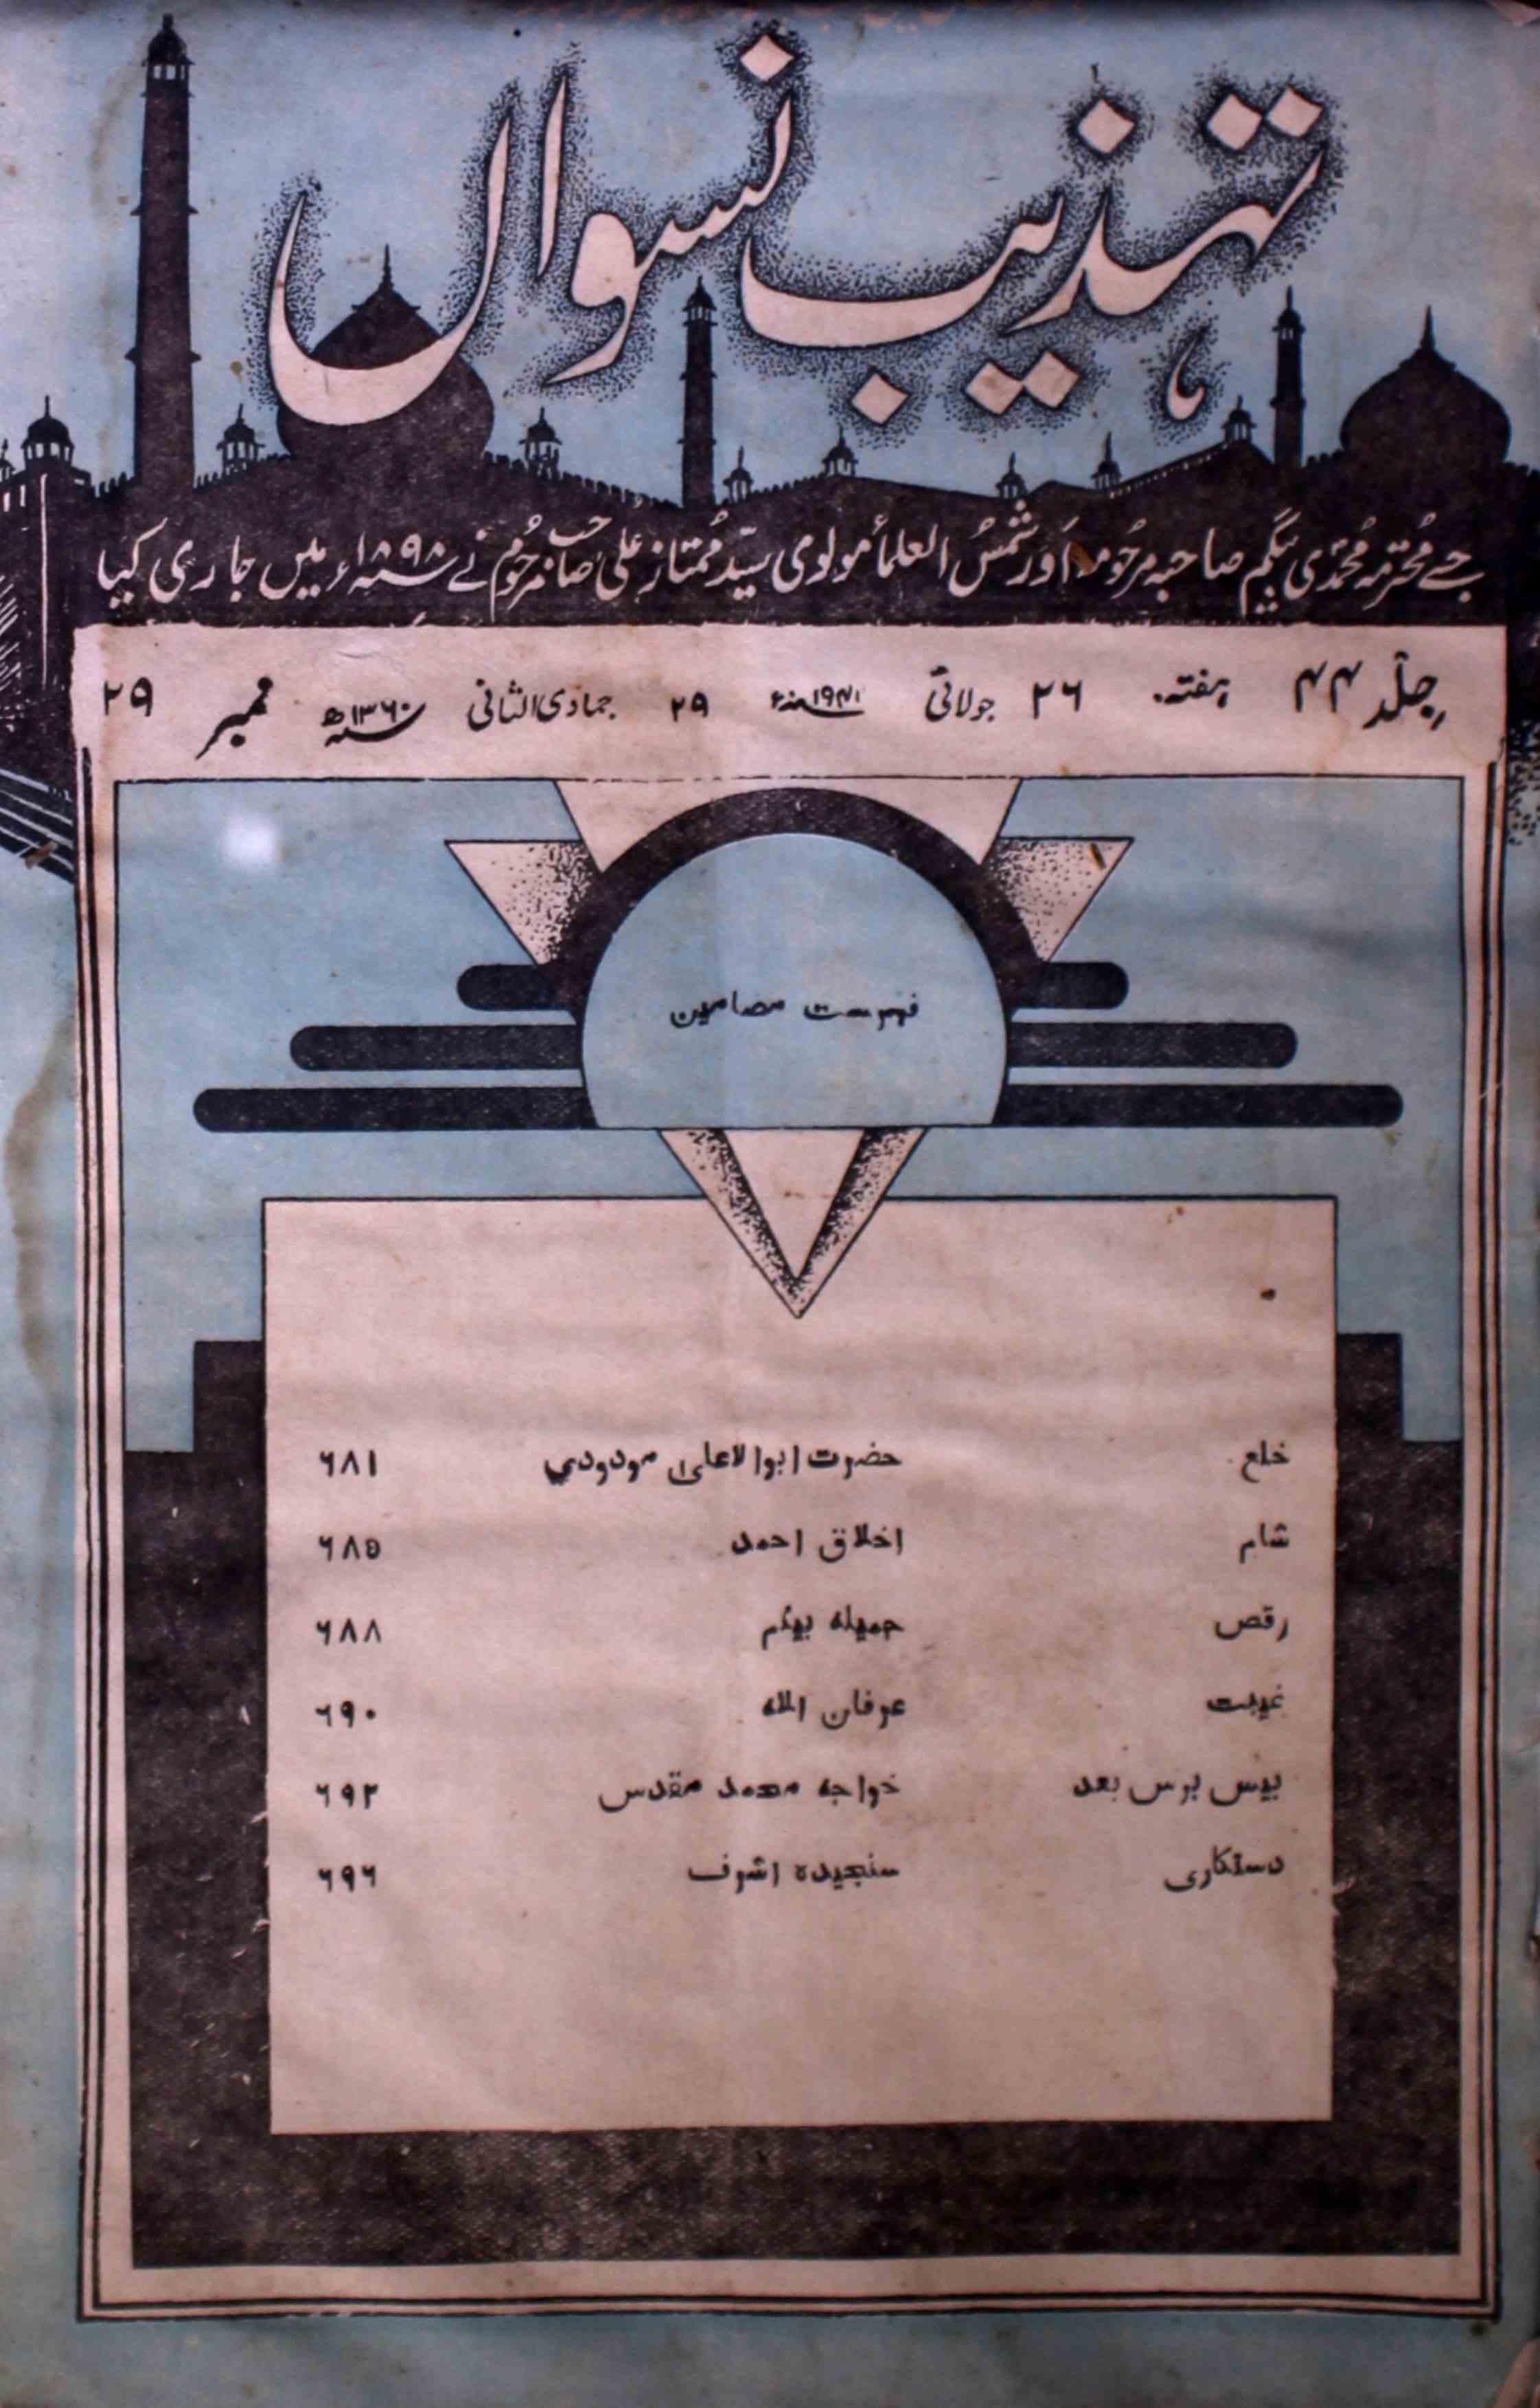 تہذیب نسواں
جسے محترمہ محمدی بیگم صاحبہ مرحومہ اور شمس العلما مولوی سید ممتاز علی صاحب مرحوم نے ۱۸۹۸ء میں جاری کیا
جلد ۴۴ ہفتہ ۲۶ جولائی ۱۹۴۱ء ۲۹ جمادی الثانی ۱۳۶۰ھ نمبر ۲۹
فہرست مضامین
خلع حضرت ابوالاعلیٰ مودودی ۶۸۱
شام اخلاق احمد ۶۸۵
رقص جمیلہ بیگم ۶۸۸
غیبت عرفان اللہ ۶۹۰
بیس برس بعد خواجہ محمد مقدس ۶۹۲
دستکاری سنجیدہ اشرف ۶۹۶